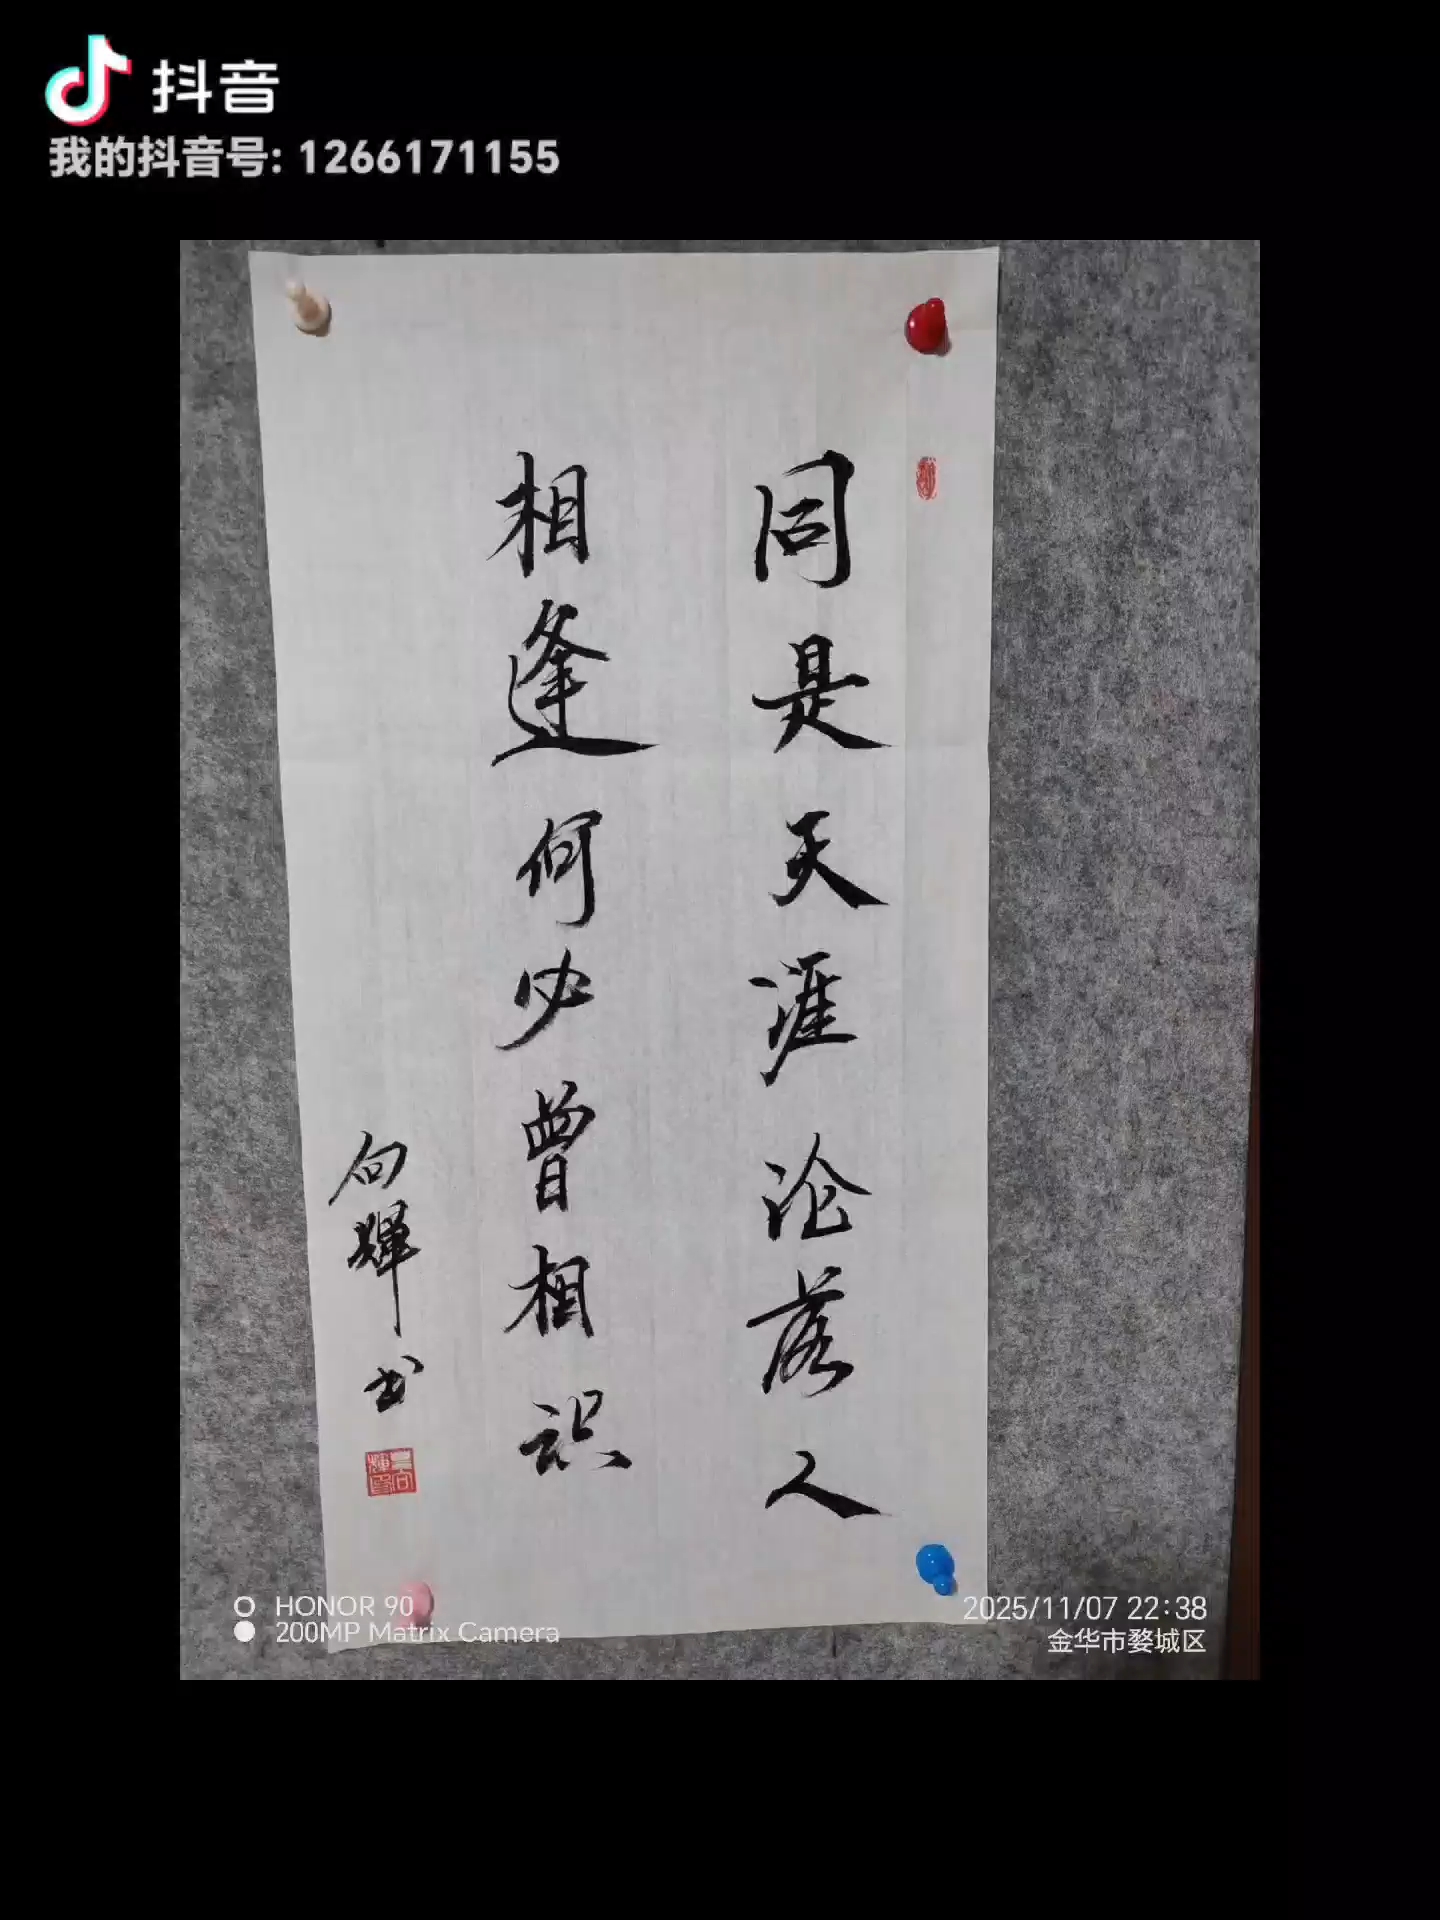 抖音
我的抖音号: 1266171155
同是天涯沦落人
相逢何必曾相识
向辉书
HONOR 90
200MP Matrix Camera
2025/11/07 22:38
金华市婺城区